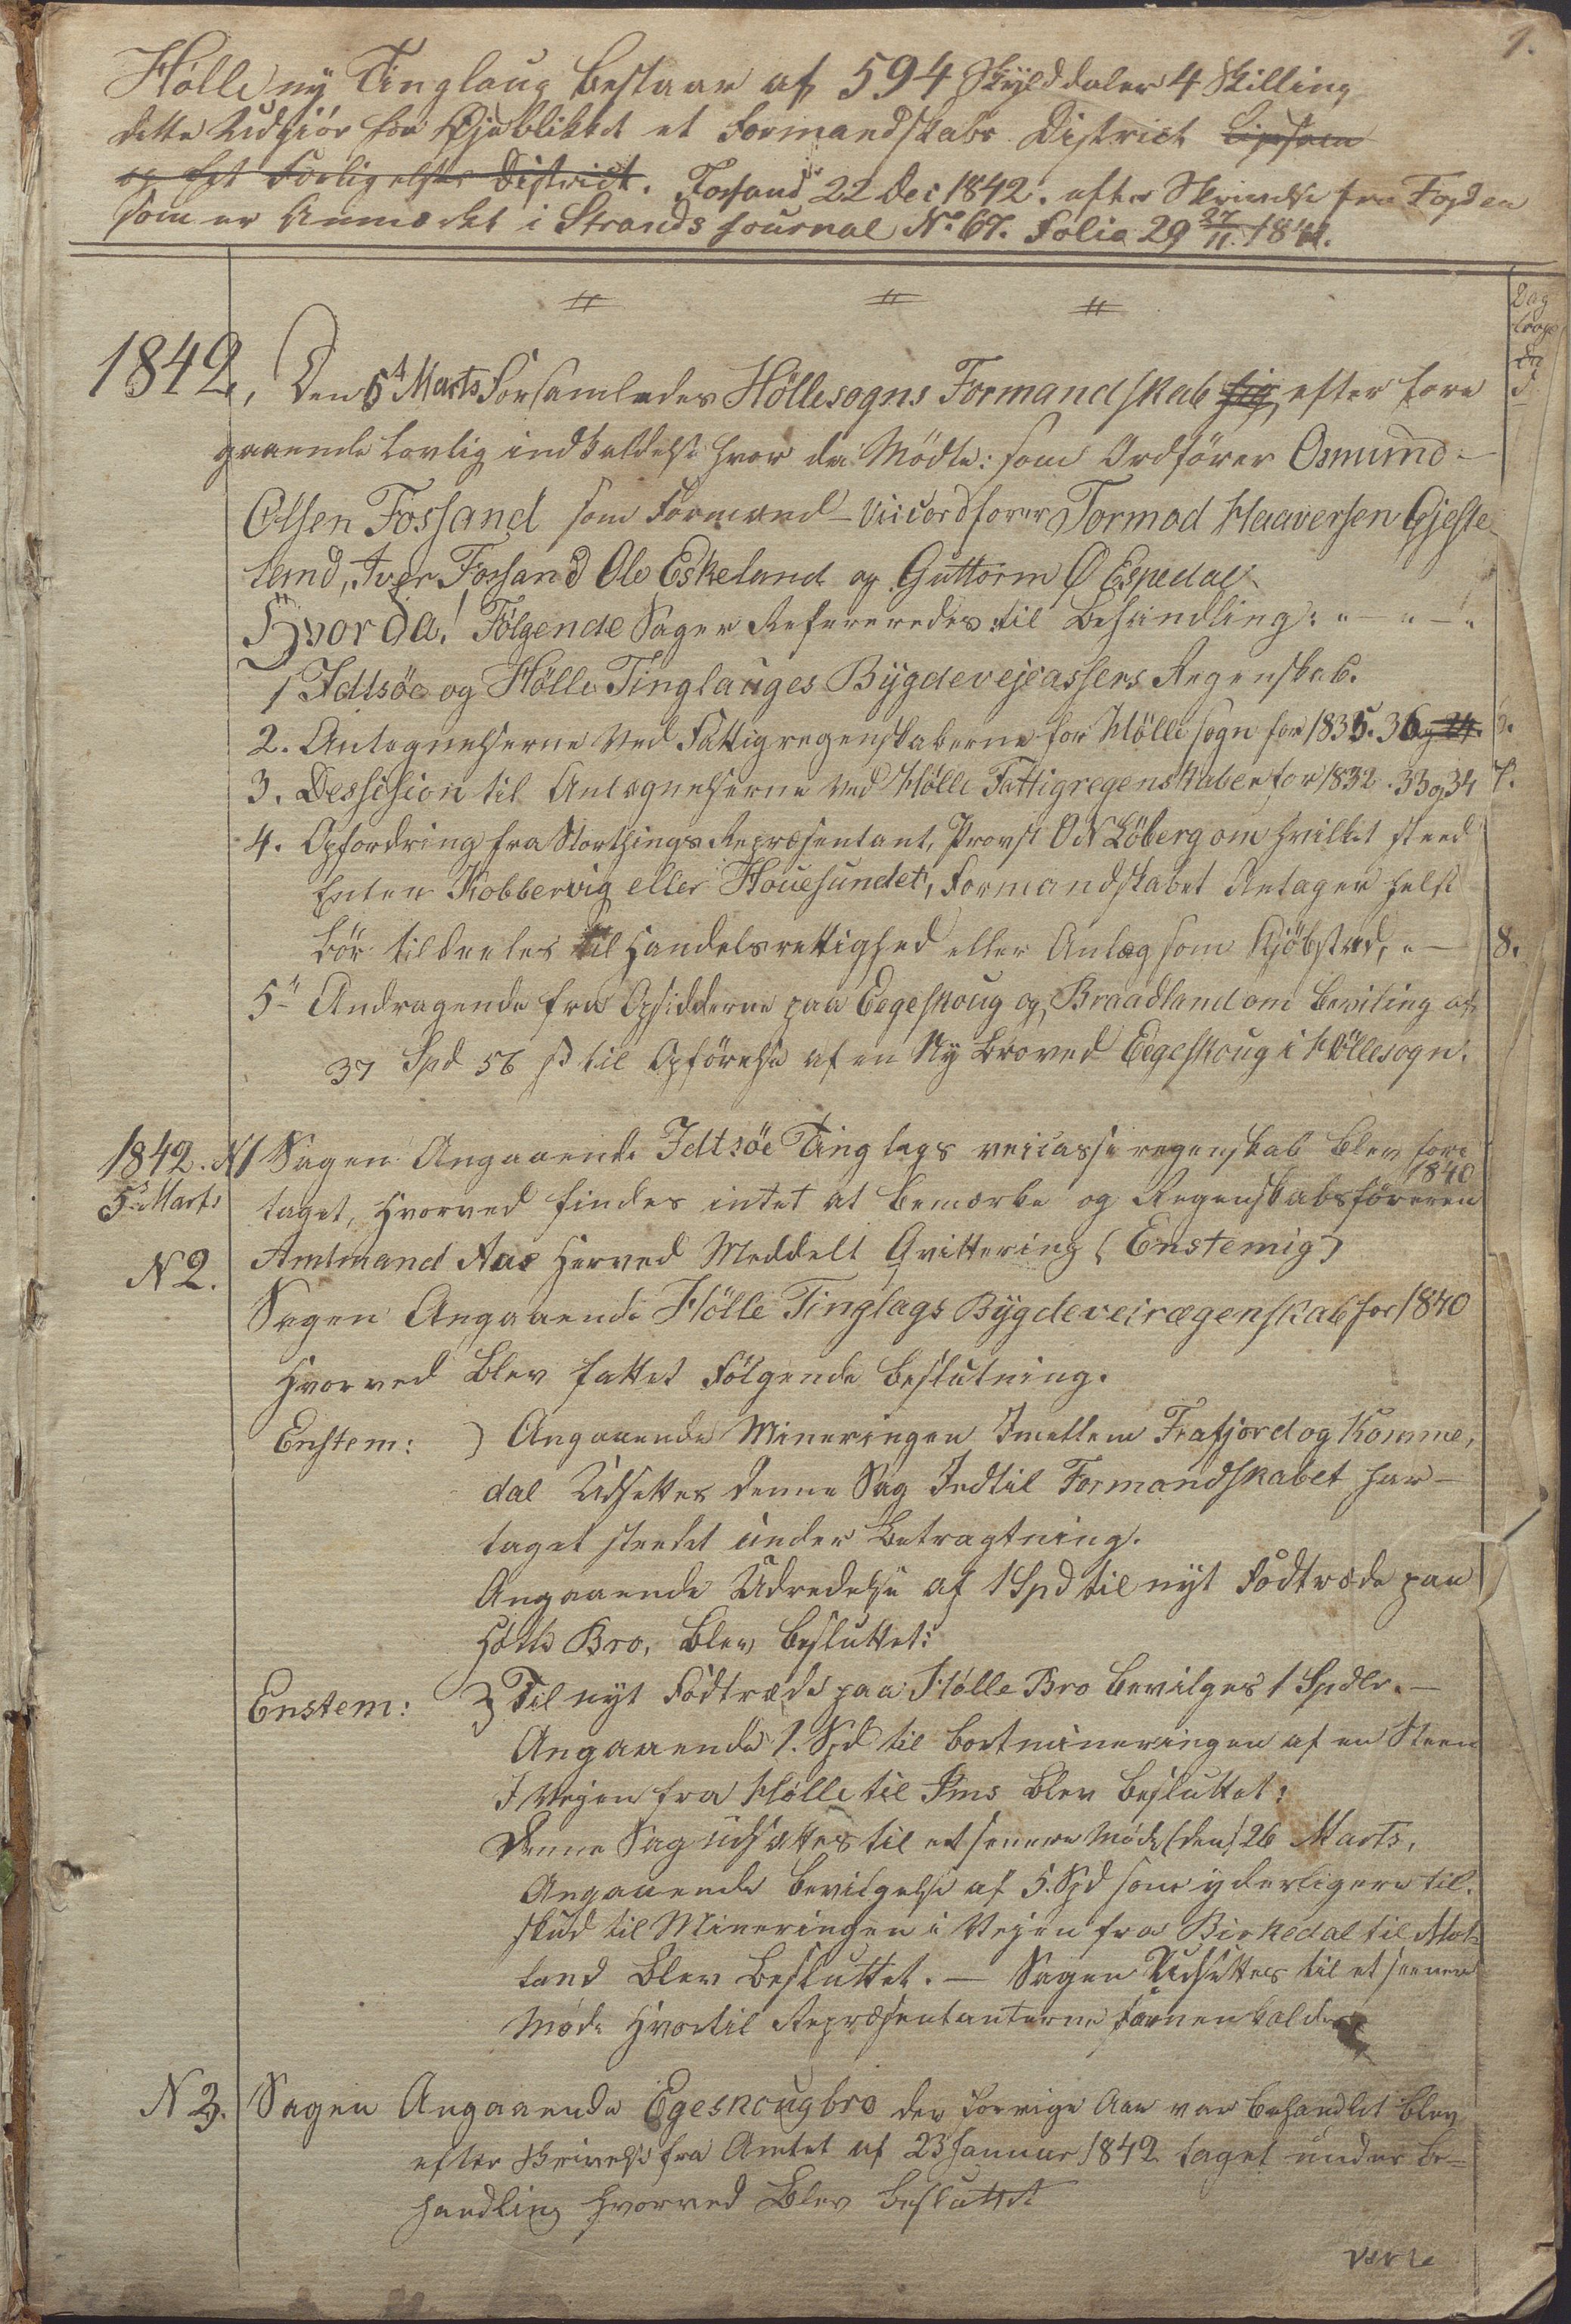 1.
Hölle ny Tinglaug bestaar af 594 Skylddaler 4 Skilling
dette Udgiör for Øjeblikket et Formandskabs District ligesom
og Et Forligelses District. Fossand 22 Dec 1842. efter Skrivelse fra Fogden
som er Anmerket i Strands Journal No. 67. Folio 29 27/11. 1841.
Dag
1842., Den 5t Marts Forsamledes Höllesogns Formandskab sig efter fore
gaaende lovlig indkaldelse hvor da Mödte: som Ordförer Osmund
Olsen Fossand som Formænd – Viceordforer Tormod Haaversen Gjeste
lemd, Iver Fossand Ole Eskeland og Guttorm Ø Espedal
Hvor da! Følgende Sager Refereredes til Behandling: " — " — "
1 Idtsöe og Hölle Tinglauges Bygdevejcassers Regenskab.
2. Antegnelserne Ved Fattigregenskaberne for Hölle sogn for 1835. 36 og 24.
3. Dessision til Antegnelserne ved Hölle Fattigregenskaber for 1832. 33 og 34 7.
4. Opfordring fra Storthings Repræsentant, Provst O N Löberg om hvilket steed
Enten Kobbervig eller Houesundet, Formandskabet Antager helst
bör tildeeles til Handelsrettighed eller Anlæg som Kjöbsted, " — 8.
5" Andragende fra Opsidderne paa Eegeskoug og Braadland om beviling af
37 Spd 56 s til Opförelse af en Ny Bro ved Eegeskoug i Höllesogn.
1842. N1 Sagen Angaaende Idtsöe Tinglags veicasse regenskab blev fore
1840
5te Marts taget, hvorved findes intet at bemærke og Regenskabsföreren
Amtmand Aas herved Meddelt Qvittering (Enstemig)
N 2.
Sagen Angaaende Hölle Tinglags Bygdeveirægenskab for 1840
hvorved blev fattet Fölgende beslutning.
Enstem: ) Angaaende Mineringen Imellem Frafjord og Komme,
dal Udsettes denne Sag Indtil Formandskabet har
taget steedet under Betragtning.
Angaaende Udredelse af 1 Spd til nyt Fodtræde paa
Hölle Bro, blev besluttet:
Enstem: } Til nyt Fodtræde paa Hölle Bro bevilges 1 Spdlr. —
Angaaende 1. Spd til bortmineringen af en Steen
I Vejen fra Hölle til Ims blev besluttet:
Denne Sag udsættes til et senere Møde (den) 26 Marts,
Angaaende bevilgelse af 5. Spd som yderligere til
skud til Mineringen i Vejen fra Birkedal til
land blev besluttet. — Sagen Udsættes til et senere
Møde hvortil Repræsentanterne
N 3. Sagen Angaaende Egeskougbro der forrige Aar var behandlet blev
efter skrivelse fra Amtet af 23 Januar 1842 taget under be=
handling hvorved blev besluttet